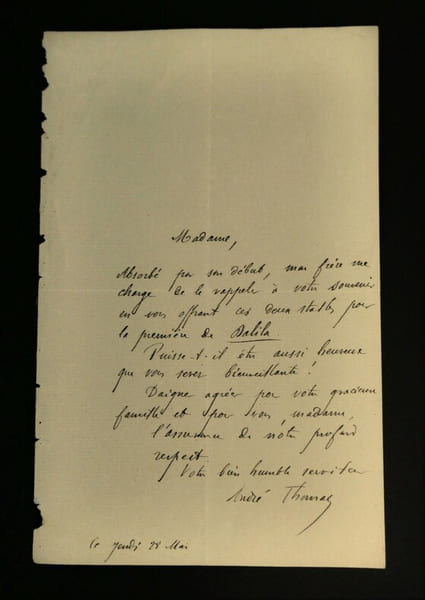 Madame,
Absorbé par son début, mon frère me
charge de le rappeler à votre souvenir
en vous offrant ces deux stalles pour
la première de Dalila
Puisse-t-il être aussi heureux
que vous serez bienveillante !
Daignez agréer pour votre gracieuse
famille et pour vous, madame,
l'assurance de notre profond
respect.
Votre bien humble serviteur
André Thomas
Ce Jeudi 28 Mai